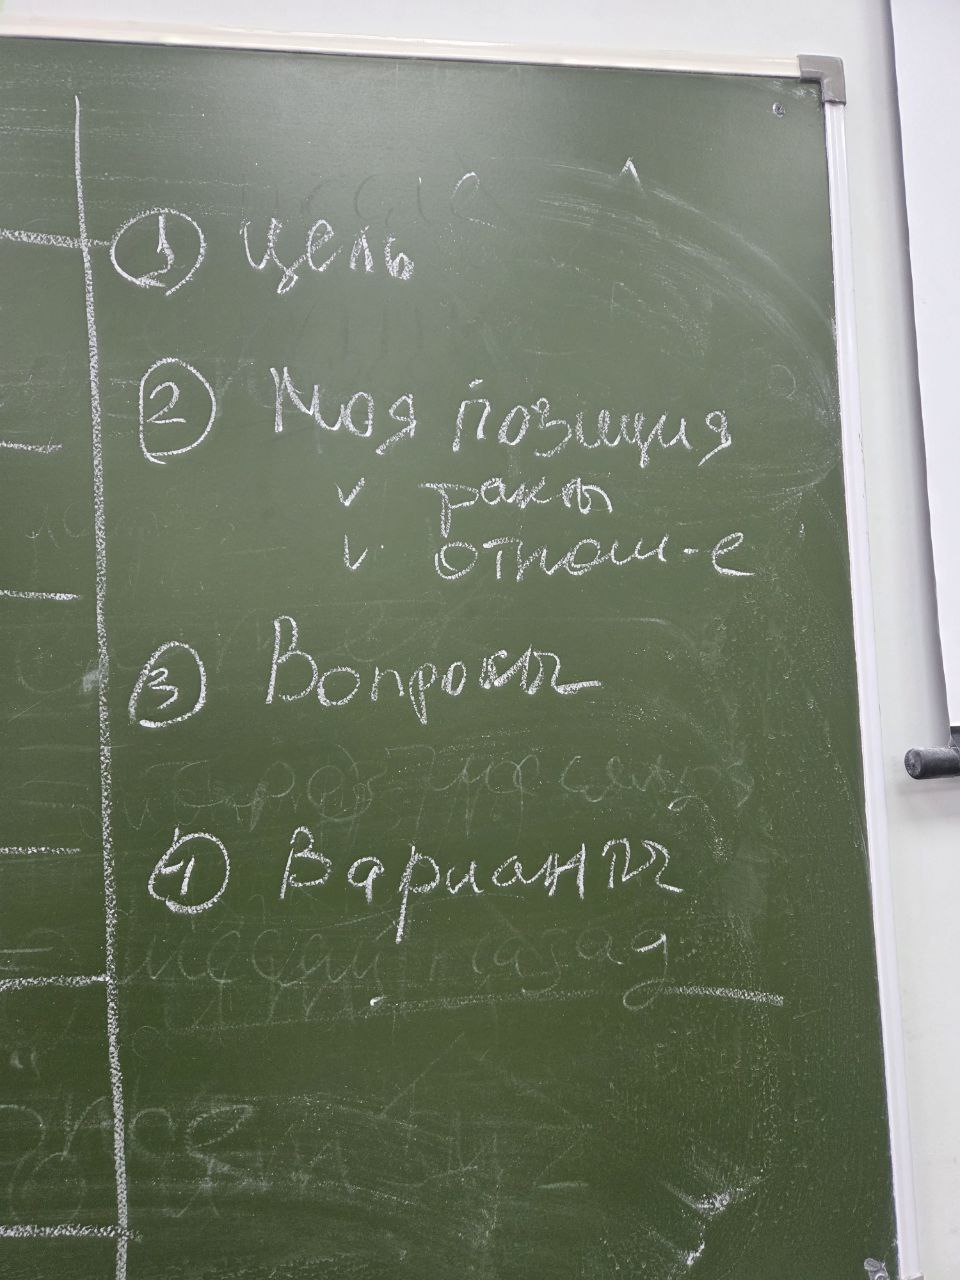 1 Цель
2 Моя позиция
v ракты
v отнош-е
3 Вопросы
4 Варианты